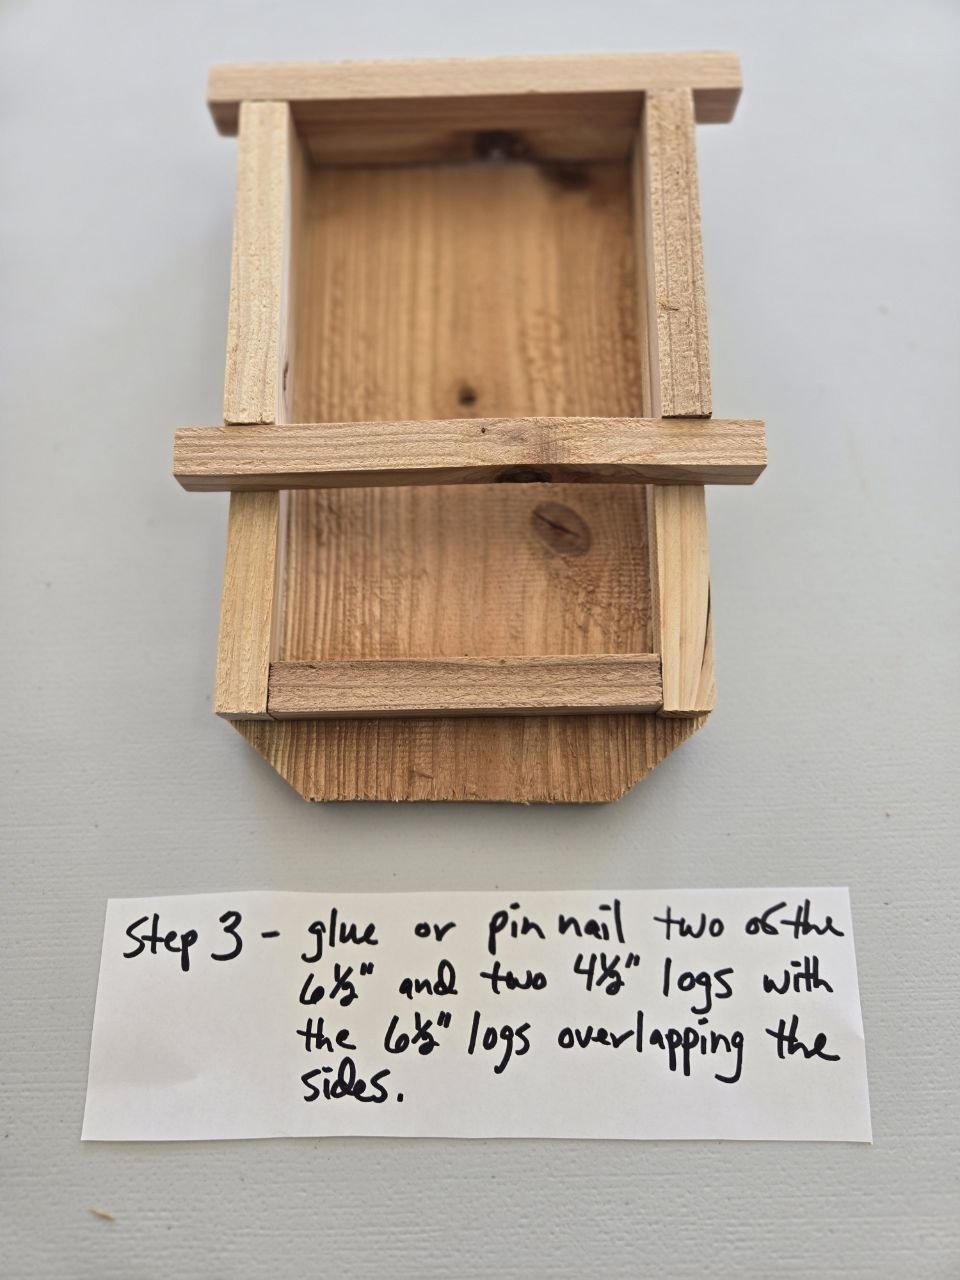 Step 3 - glue or pin nail two of the
6½" and two 4½" logs with
the 6½" logs overlapping the
sides.